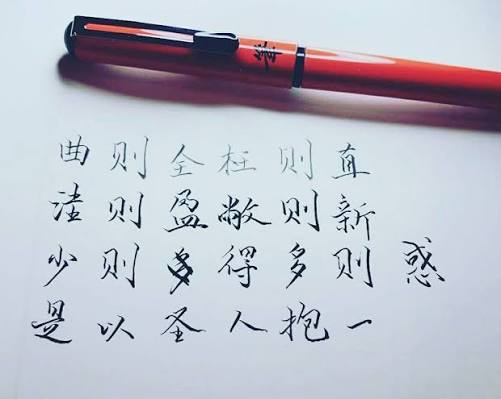 曲则全枉则直
洼则盈敝则新
少则多得多则惑
是以圣人抱一